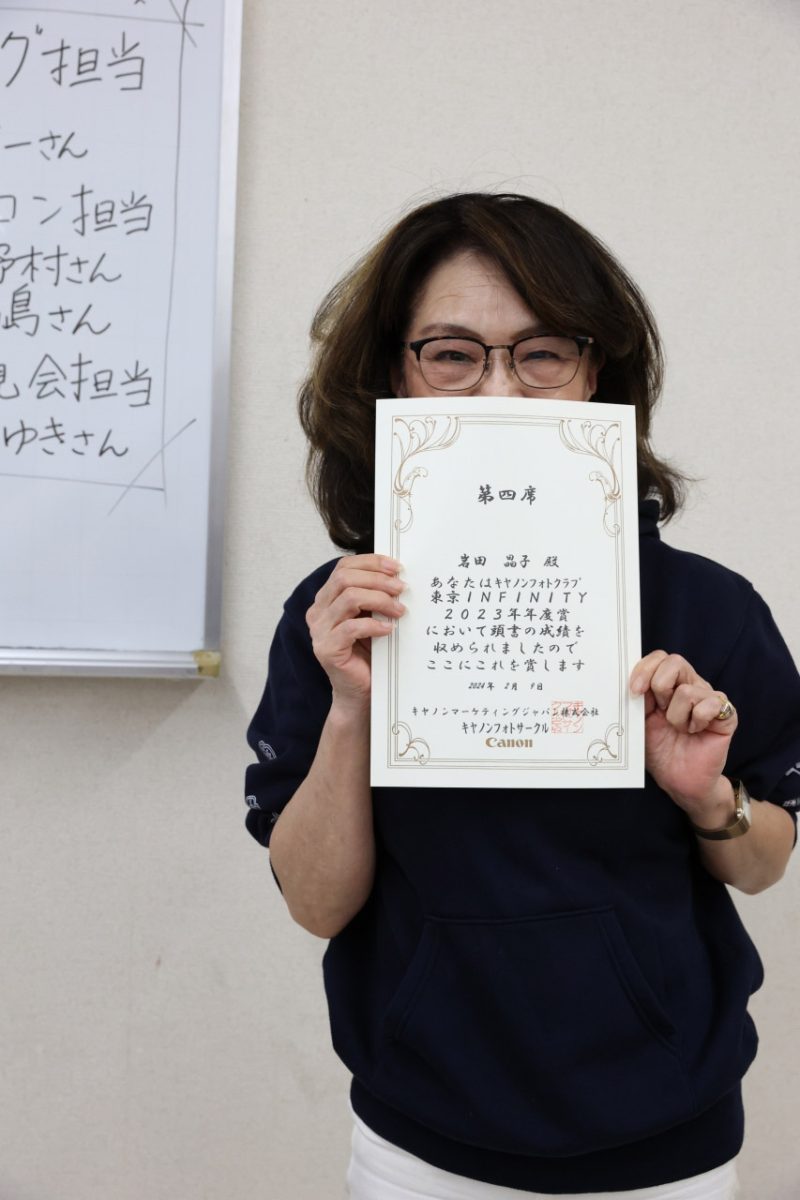 グ担当
ーさん
コン担当
野村さん
島さん
見会担当
ゆきさん
第四席
岩田 晶子 殿
あなたはキヤノンフォトクラブ
東京INFINITY
2023年年度賞
において頭書の成績を
収められましたので
ここにこれを賞します
2024年 2月 9日
キヤノンマーケティングジャパン株式会社
キヤノンフォトサークル
Canon